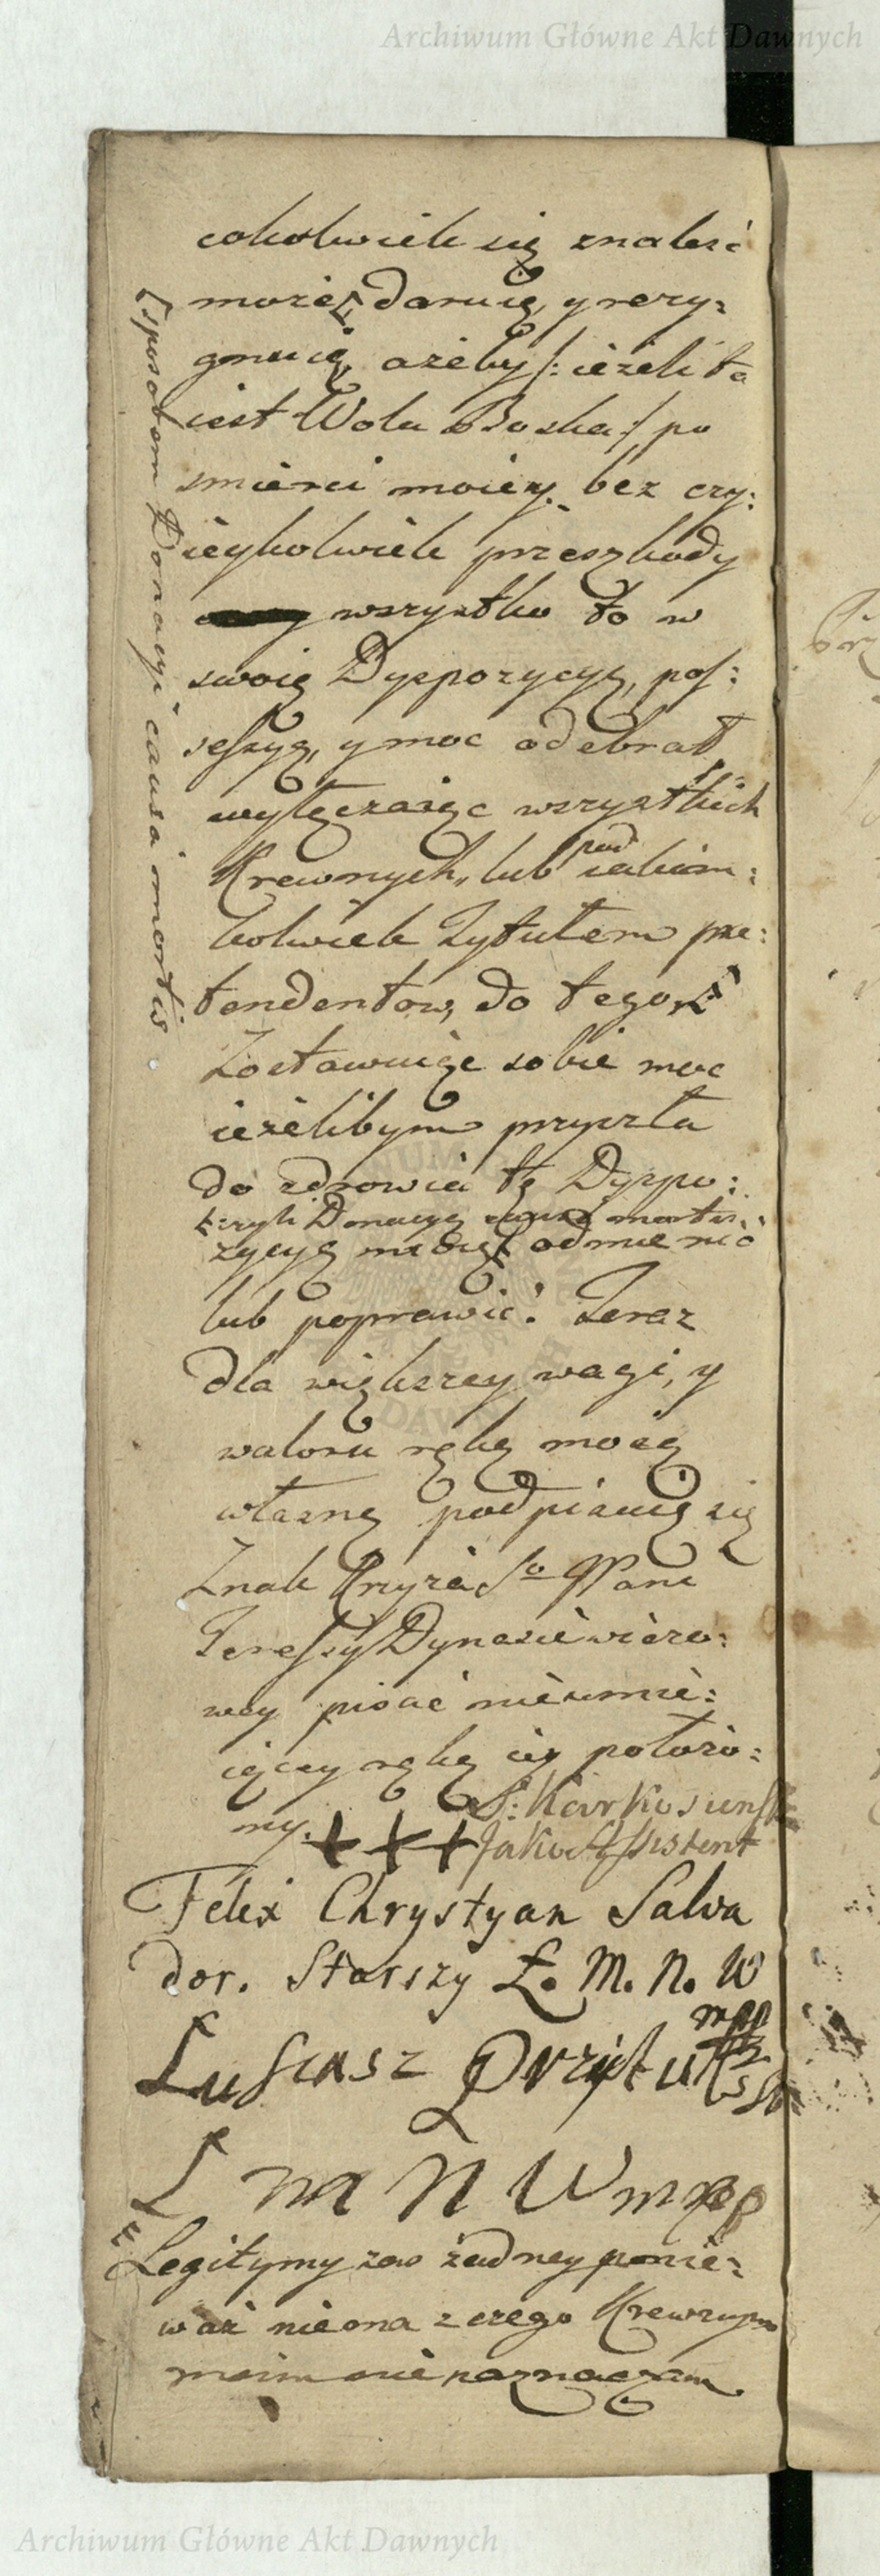 Archiwum Główne Akt Dawnych
cokolwiek się znaleść
może daruię, y rezy:
gnuię, ażeby /: ieżeli ta
iest Wola Boska :/ po
smierci moiey bez czy:
ieykolwiek przeszkody
wszystko to w
swoię Dyspozycyę, pos:
sessyę, y moc odebrał
wyłączaiąc wszystkich
Krewnych, lub pod iakim:
kolwiek Tytułem pre:
tendentow, do tego
Zostawuię sobie moc
ieżelibym przyszła
do zdrowia tę Dyspo:
Donacyę causa mortis
zycyę odmienić
lub poprawić. Teraz
dla większey wagi, y
waloru ręką moią
własną podpisuię się
Znak Krzyża S° Pani
Teressy Dynasiewiczo:
wey pisać nieumie:
iącey ręką iey położo:
ny. +++
Jako Assistent
Felix Chrystyan Salva
dor. Starszy Ł. M. N. W
mpp
Łukasz
Ł M N W mpp
Legitymy zas żadney ponie:
waż nie ma z czego Krewnym
moim nie naznaczam
sposobem Donacyi causa mortis
Archiwum Główne Akt Dawnych